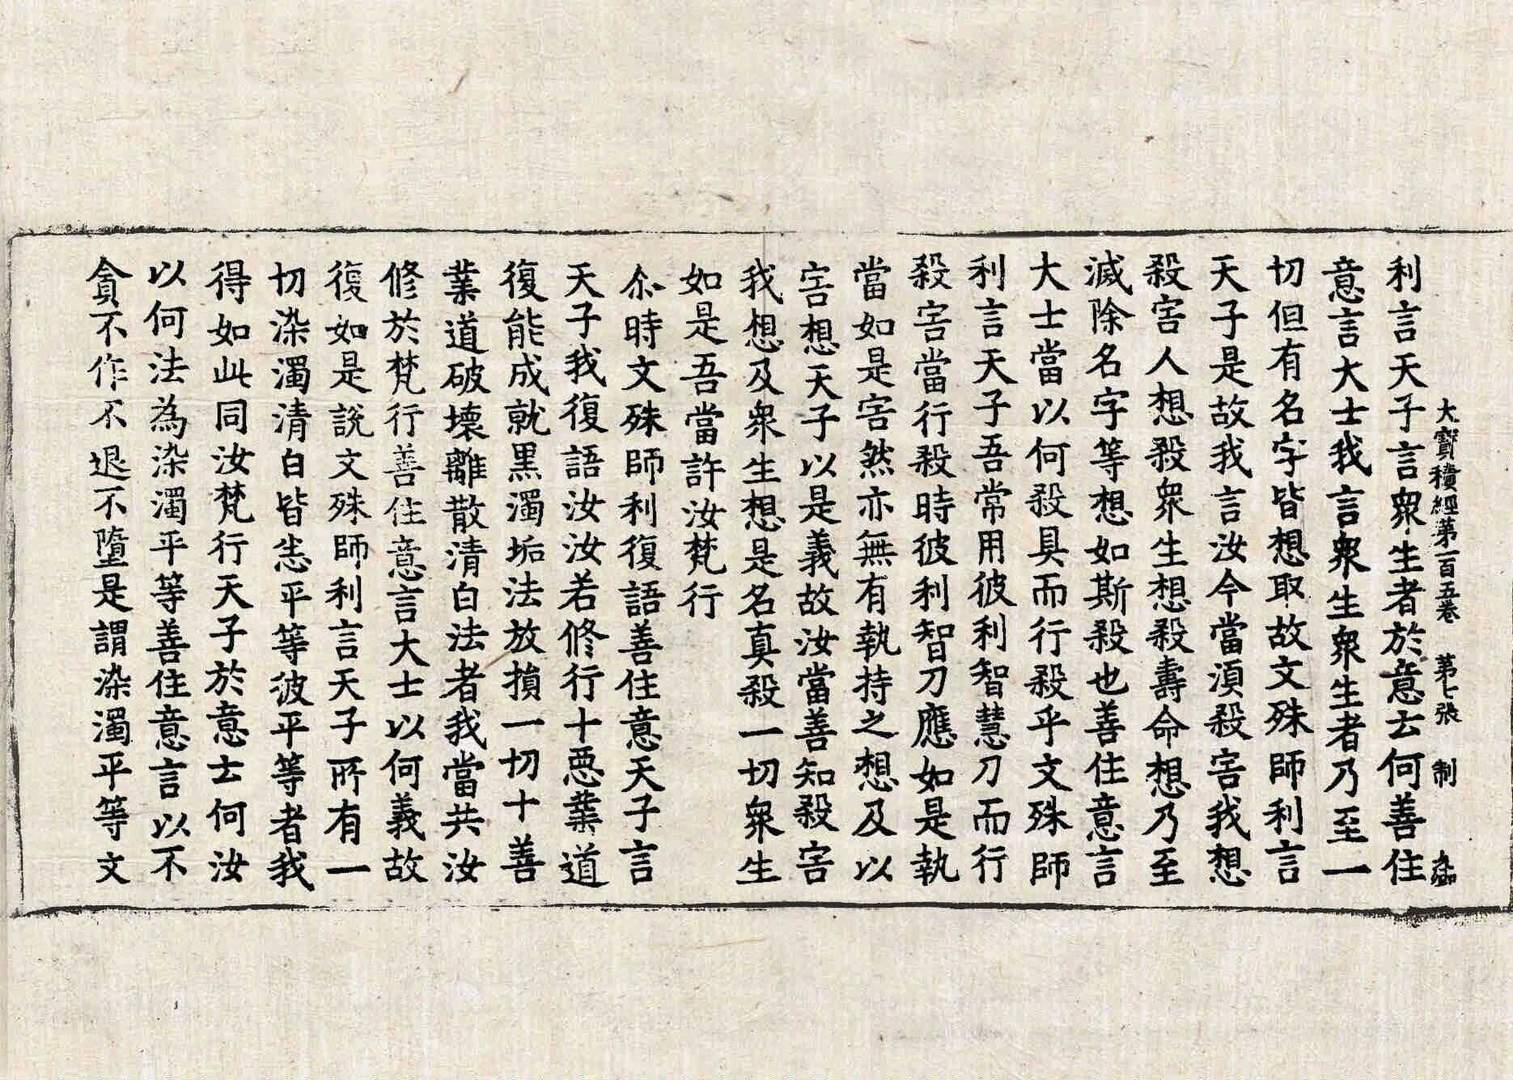 大寶積經第一百五卷　第七張　制
利言天子言衆生者於意云何善住
意言大士我言衆生衆生者乃至一
切但有名字皆想取故文殊師利言
天子是故我言汝今當湏殺害我想
殺害人想殺衆生想殺壽命想乃至
滅除名字等想如斯殺也善住意言
大士當以何殺具而行殺乎文殊師
利言天子吾常用彼利智慧刀而行
殺害當行殺時彼利智刀應如是執
當如是害然亦無有執持之想及以
害想天子以是義故汝當善知殺害
我想及衆生想是名真殺一切衆生
如是吾當許汝梵行
尒時文殊師利復語善住意天子言
天子我復語汝汝若修行十惡業道
復能成就黑濁垢法放損一切十善
業道破壞離散清白法者我當共汝
修於梵行善住意言大士以何義故
復如是說文殊師利言天子所有一
切染濁清白皆悉平等彼平等者我
得如此同汝梵行天子於意士何汝
以何法為染濁平等善住意言以不
貪不作不退不墮是謂染濁平等文